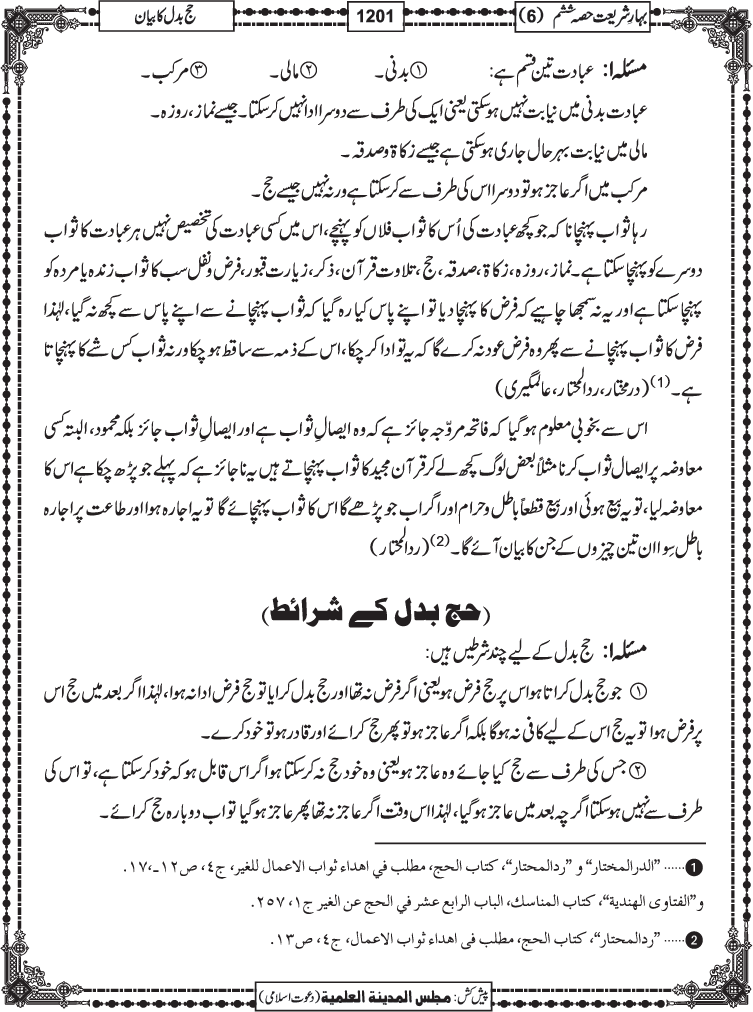 بہار شریعت حصہ ششم (6)
1201
حج بدل کا بیان
مسئلہ ۱: عبادت تین قسم ہے: ① بدنی۔ ② مالی۔ ③ مرکب۔
عبادت بدنی میں نیابت نہیں ہوسکتی یعنی ایک کی طرف سے دوسرا ادا نہیں کرسکتا۔ جیسے نماز، روزہ۔
مالی میں نیابت بہرحال جاری ہوسکتی ہے جیسے زکاۃ و صدقہ۔
مرکب میں اگر عاجز ہو تو دوسرا اس کی طرف سے کرسکتا ہے ورنہ نہیں جیسے حج۔
رہا ثواب پہنچانا کہ جو کچھ عبادت کی اُس کا ثواب فلاں کو پہنچے، اس میں کسی عبادت کی تخصیص نہیں ہر عبادت کا ثواب
دوسرے کو پہنچا سکتا ہے۔ نماز، روزہ، زکاۃ، صدقہ، حج، تلاوت قرآن، ذکر، زیارت قبور، فرض و نفل سب کا ثواب زندہ یا مردہ کو
پہنچا سکتا ہے اور یہ نہ سمجھا چاہیے کہ فرض کا پہنچا دیا تو اپنے پاس کیا رہ گیا کہ ثواب پہنچانے سے اپنے پاس سے کچھ نہ گیا، لہٰذا
فرض کا ثواب پہنچانے سے پھر وہ فرض عود نہ کرے گا کہ یہ تو ادا کر چکا، اس کے ذمہ سے ساقط ہو چکا ورنہ ثواب کس شے کا پہنچاتا
ہے۔ (1) (درمختار، ردالمحتار، عالمگیری)
اس سے بخوبی معلوم ہوگیا کہ فاتحہ مروّجہ جائز ہے کہ وہ ایصالِ ثواب ہے اور ایصالِ ثواب جائز بلکہ محمود، البتہ کسی
معاوضہ پر ایصال ثواب کرنا مثلاً بعض لوگ کچھ لے کر قرآن مجید کا ثواب پہنچاتے ہیں یہ ناجائز ہے کہ پہلے جو پڑھ چکا ہے اس کا
معاوضہ لیا، تو یہ بیع ہوئی اور بیع قطعاً باطل و حرام اور اگر اب جو پڑھے گا اس کا ثواب پہنچائے گا تو یہ اجارہ ہوا اور طاعت پر اجارہ
باطل سِوا ان تین چیزوں کے جن کا بیان آئے گا۔ (2) (ردالمحتار)
(حج بدل کے شرائط)
مسئلہ ۱: حج بدل کے لیے چند شرطیں ہیں:
① جو حج بدل کراتا ہو اس پر حج فرض ہو یعنی اگر فرض نہ تھا اور حج بدل کرایا تو حج فرض ادا نہ ہوا، لہٰذا اگر بعد میں حج اس
پر فرض ہوا تو یہ حج اس کے لیے کافی نہ ہوگا بلکہ اگر عاجز ہو تو پھر حج کرائے اور قادر ہو تو خود کرے۔
② جس کی طرف سے حج کیا جائے وہ عاجز ہو یعنی وہ خود حج نہ کرسکتا ہو اگر اس قابل ہو کہ خود کرسکتا ہے، تو اس کی
طرف سے نہیں ہوسکتا اگرچہ بعد میں عاجز ہوگیا، لہٰذا اس وقت اگر عاجز نہ تھا پھر عاجز ہوگیا تو اب دوبارہ حج کرائے۔
1 ...... "الدرالمختار" و "ردالمحتار"، کتاب الحج، مطلب في اهداء ثواب الاعمال للغیر، ج٤، ص١٢ـ١٧.
و"الفتاوی الهندیة"، کتاب المناسك، الباب الرابع عشر في الحج عن الغیر ج١، ٢٥٧.
2 ...... "ردالمحتار"، کتاب الحج، مطلب فی اهداء ثواب الاعمال، ج٤، ص١٣.
پیش کش: مجلس المدینة العلمیة (دعوت اسلامی)